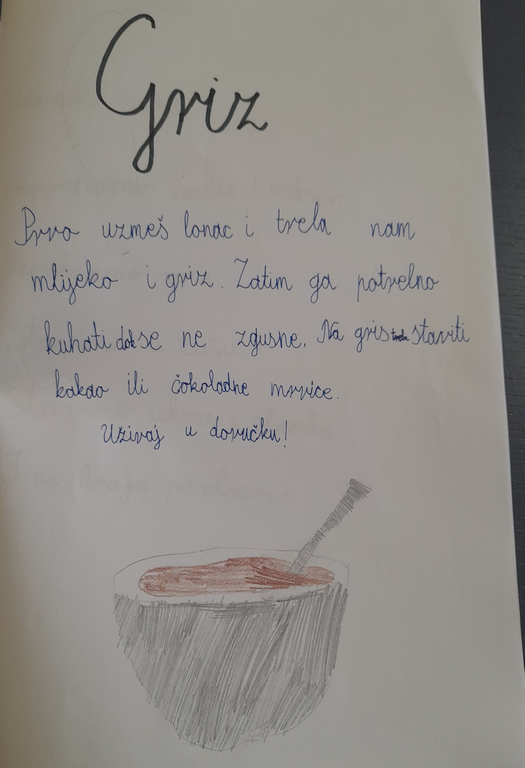 Griz
Prvo uzmeš lonac i treba nam
mlijeko i griz. Zatim ga potrebno
kuhati dok se ne zgusne. Na gris treba staviti
kakao ili čokoladne mrvice.
Uživaj u doručku!